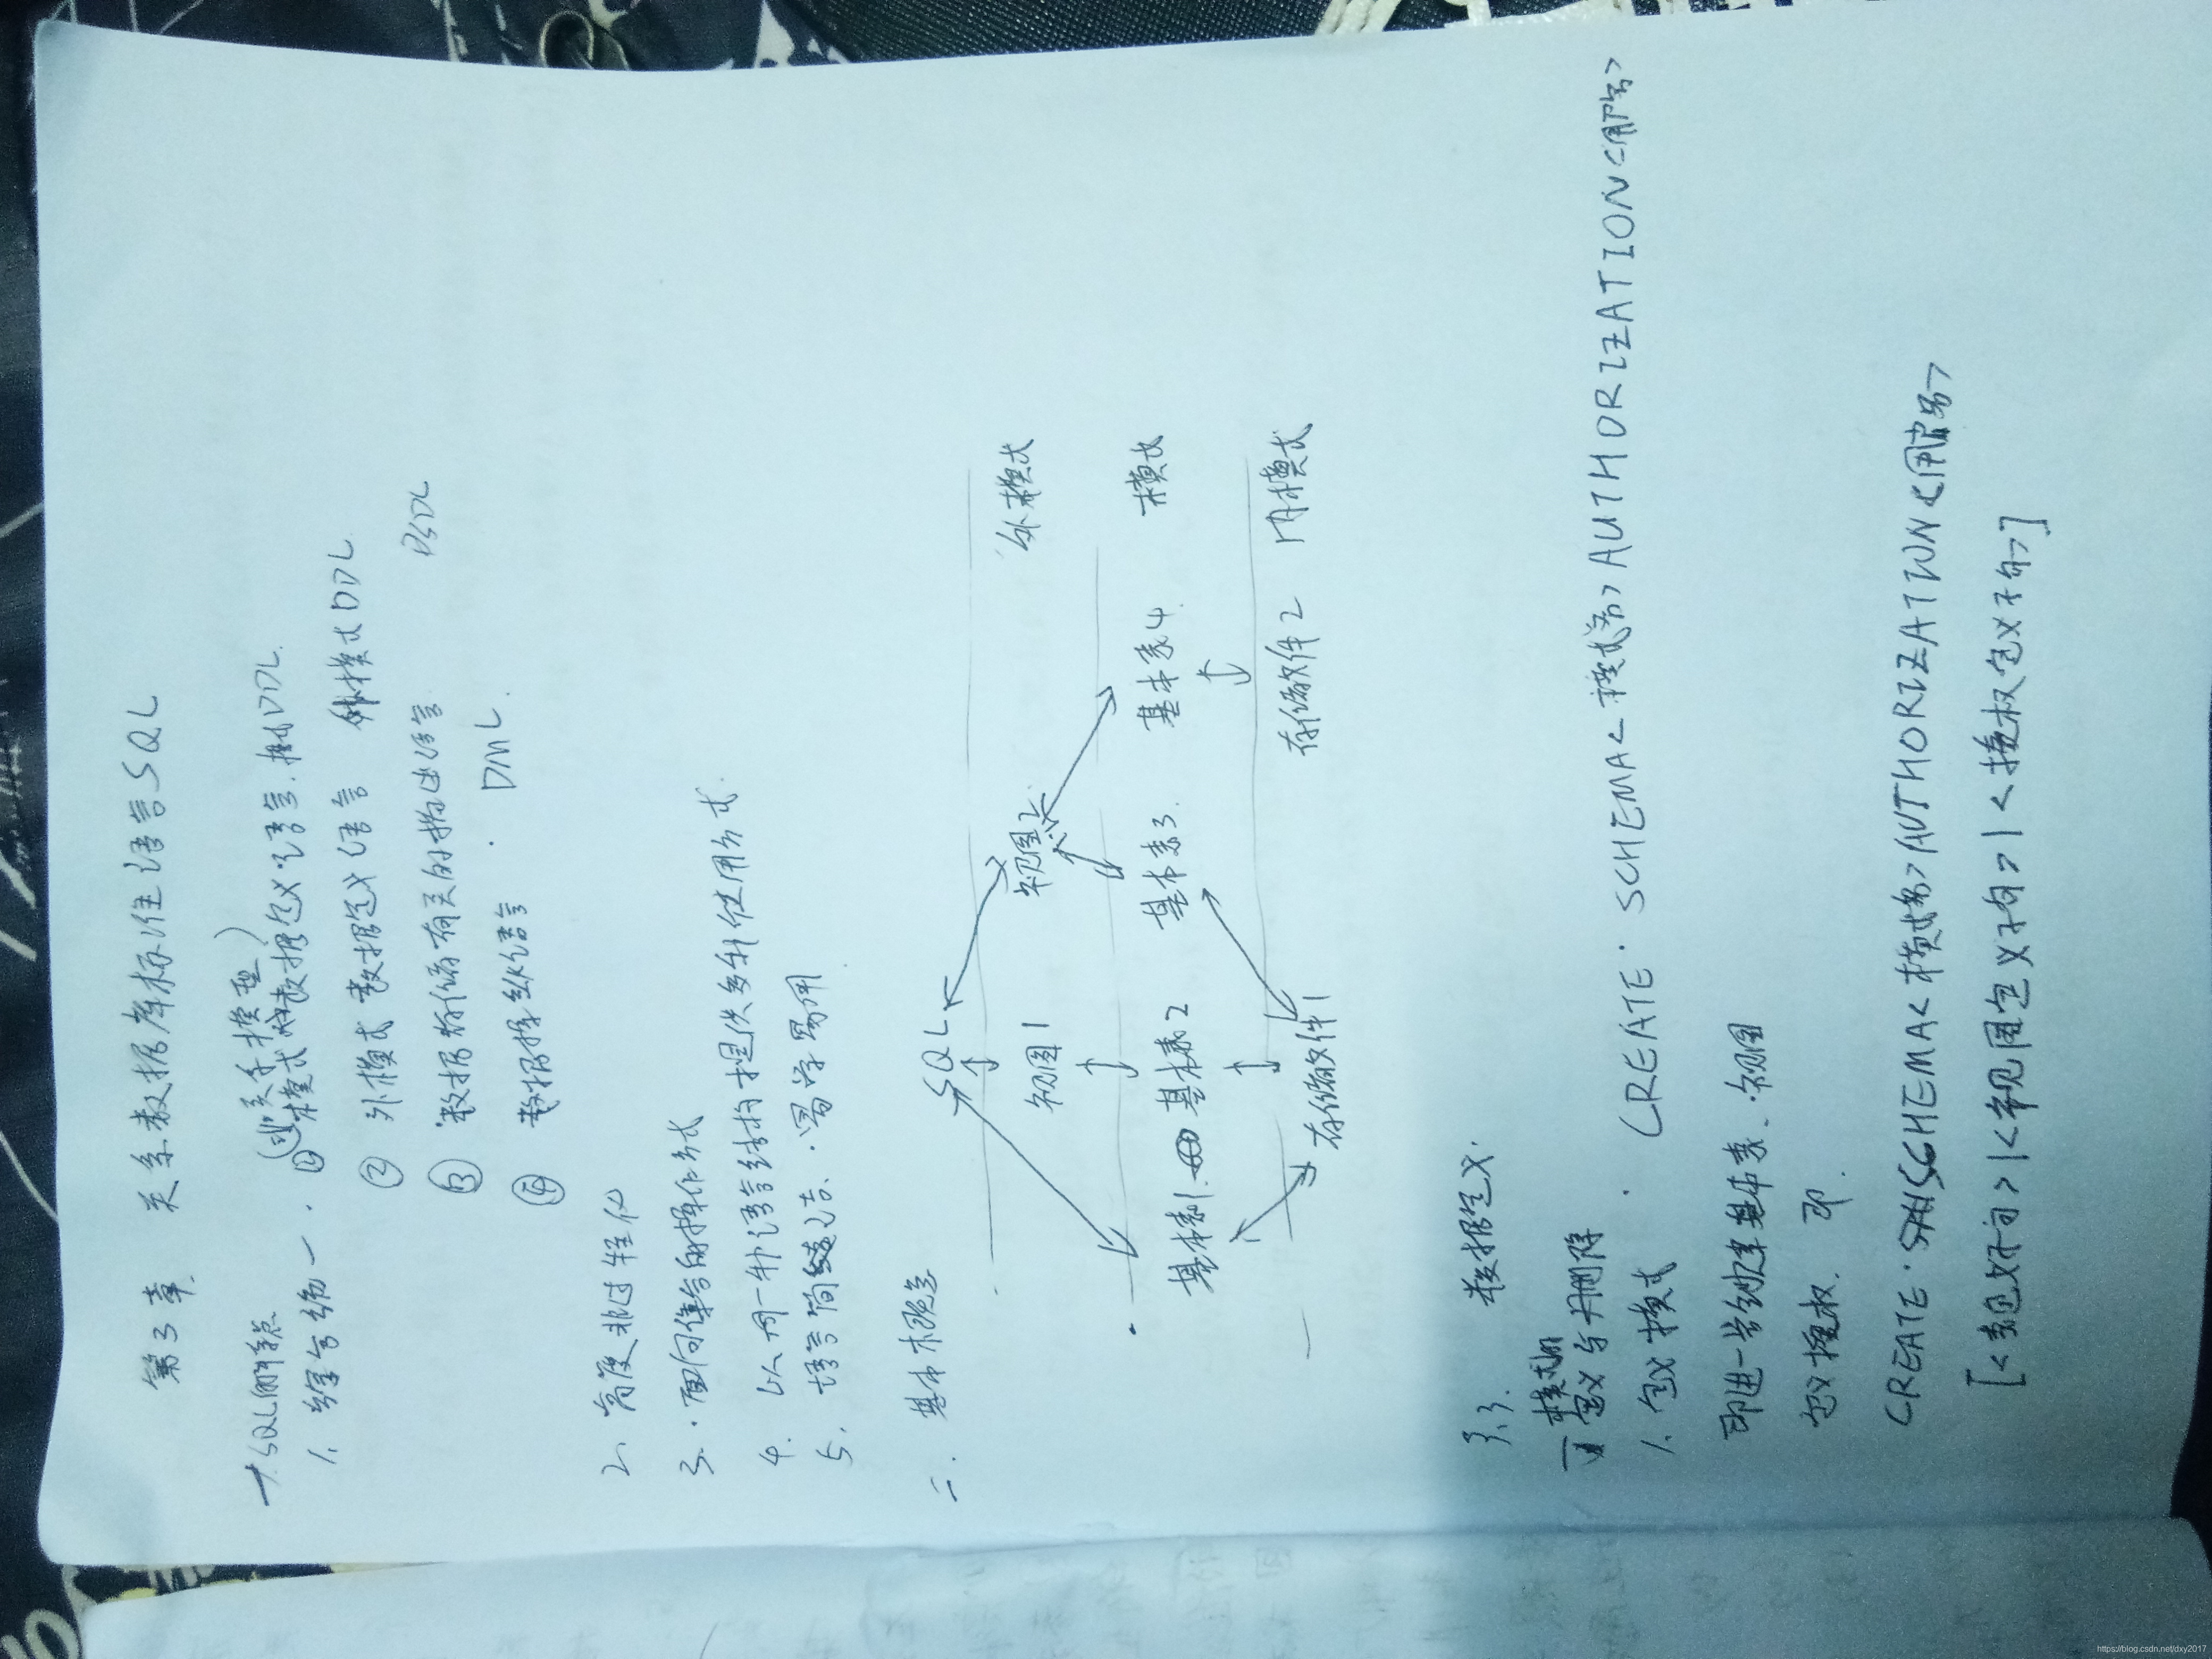 第3章 关系数据库标准语言SQL
一.SQL的特点
1. 综合统一. (非关系模型)
① 模式数据定义语言.模式DDL.
② 外模式数据定义语言 外模式DDL
③ 数据存储有关的描述语言 DSDL
④ 数据操纵语言. DML.
2. 高度非过程化
3. 面向集合的操作方式
4. 以同一种语言结构提供多种使用方式.
5. 语言简洁.易学易用.
二. 基本概念
SQL
视图1 视图2 外模式
基本表1 基本表2 基本表3. 基本表4. 模式
存储文件1 存储文件2 内模式
3.3. 数据定义.
一 模式的定义与删除
1. 定义模式. CREATE SCHEMA<模式名>AUTHORIZATION<用户名>
即进一步创建基本表、视图
定义授权. 即.
CREATE SCHEMA<模式名>AUTHORIZATION<用户名>
[<表定义子句>|<视图定义子句>|<授权定义子句>]
https://blog.csdn.net/dxy2017